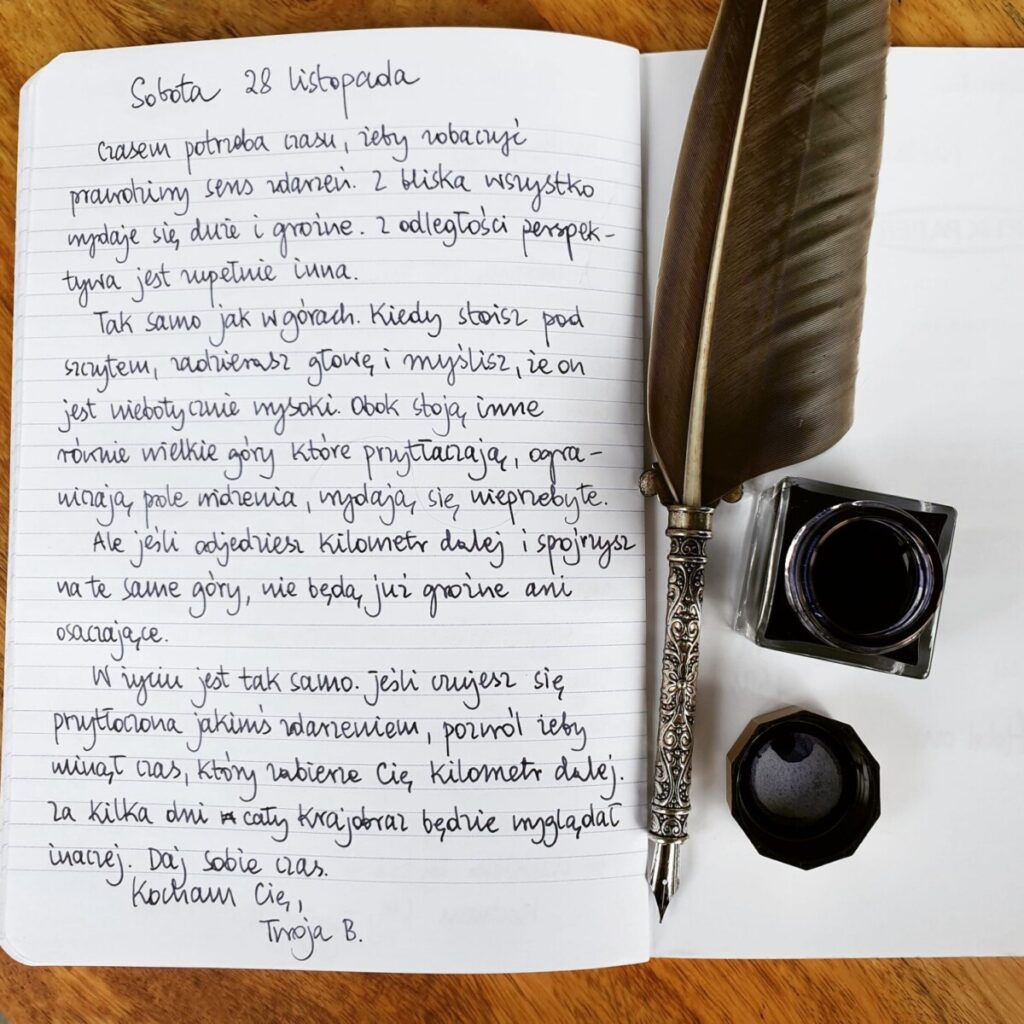 Sobota 28 listopada
Czasem potrzeba czasu, żeby zobaczyć
prawdziwy sens zdarzeń. Z bliska wszystko
wydaje się duże i groźne. Z odległości perspek-
tywa jest zupełnie inna.
Tak samo jak w górach. Kiedy stoisz pod
szczytem, zadzierasz głowę i myślisz, że on
jest niebotycznie wysoki. Obok stoją inne
równie wielkie góry które przytłaczają, ogra-
niczają pole widzenia, wydają się nieprzebyte.
Ale jeśli odjedziesz kilometr dalej i spojrzysz
na te same góry, nie będą już groźne ani
osaczające.
W życiu jest tak samo. Jeśli czujesz się
przytłoczona jakimś zdarzeniem, pozwól żeby
minął czas, który zabierze Cię kilometr dalej.
Za kilka dni cały krajobraz będzie wyglądał
inaczej. Daj sobie czas.
Kocham Cię,
Twoja B.